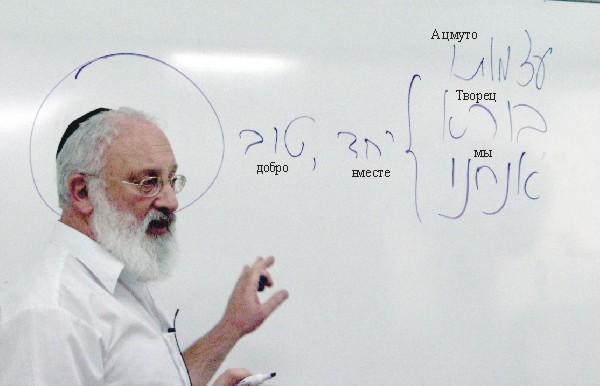 Ацмуто
עצמותו
Творец
בורא
טוב, יחד
мы
добро вместе
אנחנו